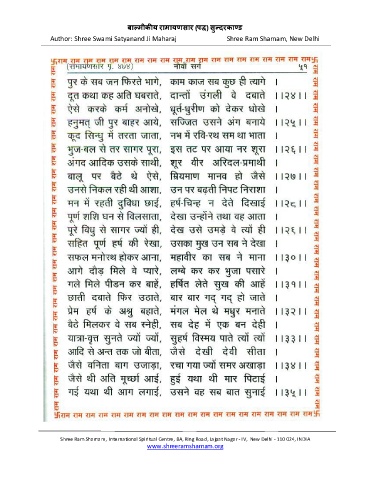 बाल्मीकीय रामायणसार (पद्य) सुन्दरकाण्ड
Author: Shree Swami Satyanand Ji Maharaj Shree Ram Sharnam, New Delhi
卐राम राम राम राम राम राम राम राम राम राम राम राम राम राम राम राम राम राम卐
(रामायणसार पृ. ४७४) नौवाँ सर्ग ५१
पुर के सब जन फिरते भागे, काम काज सब कुछ ही त्यागे ।
दूत कथा कह अति घबराते, दान्तों उंगली वे दबाते ।।२४।।
ऐसे करके कर्म अनोखे, धूर्त-धुरीण को देकर धोखे ।
हनुमत् जी पुर बाहर आये, सज्जित उसने अंग बनाये ।।२५।।
कूद सिन्धु में तरता जाता, नभ में रवि-रथ सम था भाता ।
भुज-बल से तर सागर पूरा, इस तट पर आया नर शूरा ।।२६।।
अंगद आदिक उसके साथी, शूर वीर अरिदल-प्रमाथी ।
बालू पर बैठे थे ऐसे, म्रियमाण मानव हो जैसे ।।२७।।
उनसे निकल रही थी आशा, उन पर बढ़ती निपट निराशा ।
मन में रहती दुविधा छाई, हर्ष-चिन्ह न देते दिखाई ।।२८।।
पूर्ण शशि घन से विलसाता, देखा उन्होंने तथा वह आता ।
पूरे विधु से सागर ज्यों ही, देख उसे उमड़े वे त्यों ही ।।२९।।
सहित पूर्ण हर्ष की रेखा, उसका मुख उन सब ने देखा ।
सफल मनोरथ होकर आना, महावीर का सब ने माना ।।३०।।
आगे दौड़ मिले वे प्यारे, लम्बे कर कर भुजा पसारे ।
गले मिले पीडन कर बाहें, हर्षित लेते सुख की आहें ।।३१।।
छाती दबाते फिर उठाते, बार बार गद् गद् हो जाते ।
प्रेम हर्ष के अश्रु बहाते, मंगल मेल थे मधुर मनाते ।।३२।।
बैठे मिलकर वे सब स्नेही, सब देह में एक बन देही ।
यात्रा-वृत्त सुनते ज्यों ज्यों, सुहर्ष विस्मय पाते त्यों त्यों ।।३३।।
आदि से अन्त तक जो बीता, जैसे देखी देवी सीता ।
जैसे वनिता बाग उजाड़ा, रचा गया ज्यों समर अखाड़ा ।।३४।।
जैसे थी अति मूर्च्छा आई, हुई यथा थी मार पिटाई ।
गई यथा थी आग लगाई, उसने वह सब बात सुनाई ।।३५।।
卐राम राम राम राम राम राम राम राम राम राम राम राम राम राम राम राम राम राम卐
Shree Ram Sharnam, International Spiritual Centre, 8A, Ring Road, Lajpat Nagar - IV, New Delhi - 110 024, INDIA
www.shreeramsharnam.org